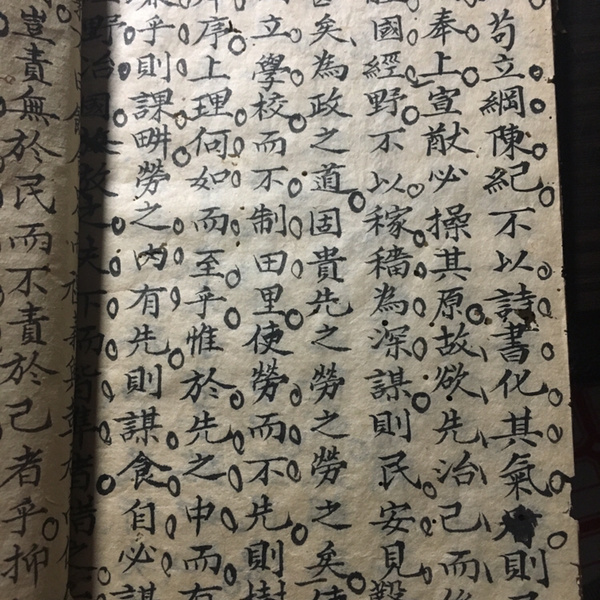 苟立綱陳紀不以詩書化其氣則
奉上宣猷必操其原故欲先治己而後
國經野不以稼穡為深謀則民安見
矣為政之道固貴先之勞之矣
立學校而不制田里使勞而不先則樹
序上理何如而至乎惟於先之中而有
乎則課畊勞之內有先則謀食自必謀
野治國
豈責無於民而不責於己者乎抑